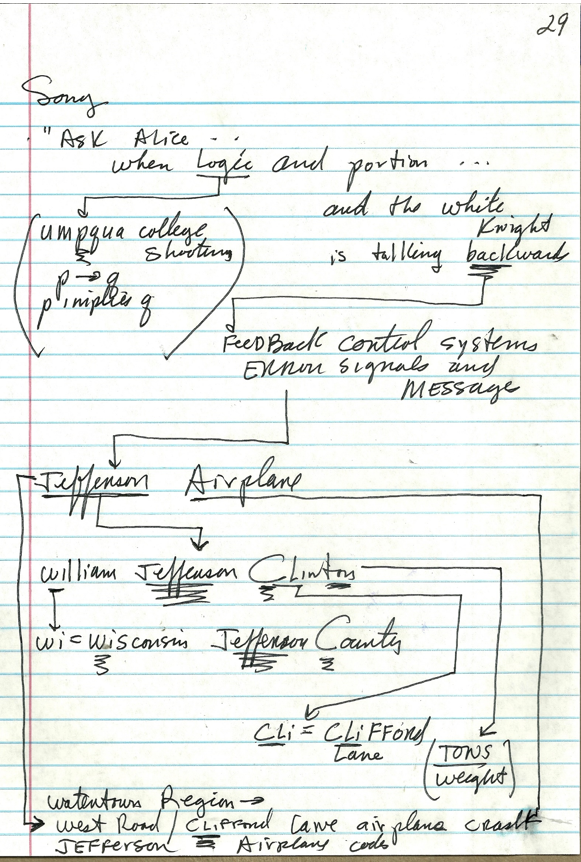 29
Song
"Ask Alice ...
when Logic and portion ...
and the white
Knight
is talking backwards
umpqua college
shooting
p → q
p implies q
FeedBack control systems
ERROR signals and
MESSAGE
Jefferson Airplane
william Jefferson Clinton
wi = Wisconsin Jefferson County
CLi = CLiFFord
Lane
(TONS
weight)
watertown Region →
West Road / CLIFFORD Lane airplane crash
JEFFerson Airplane code